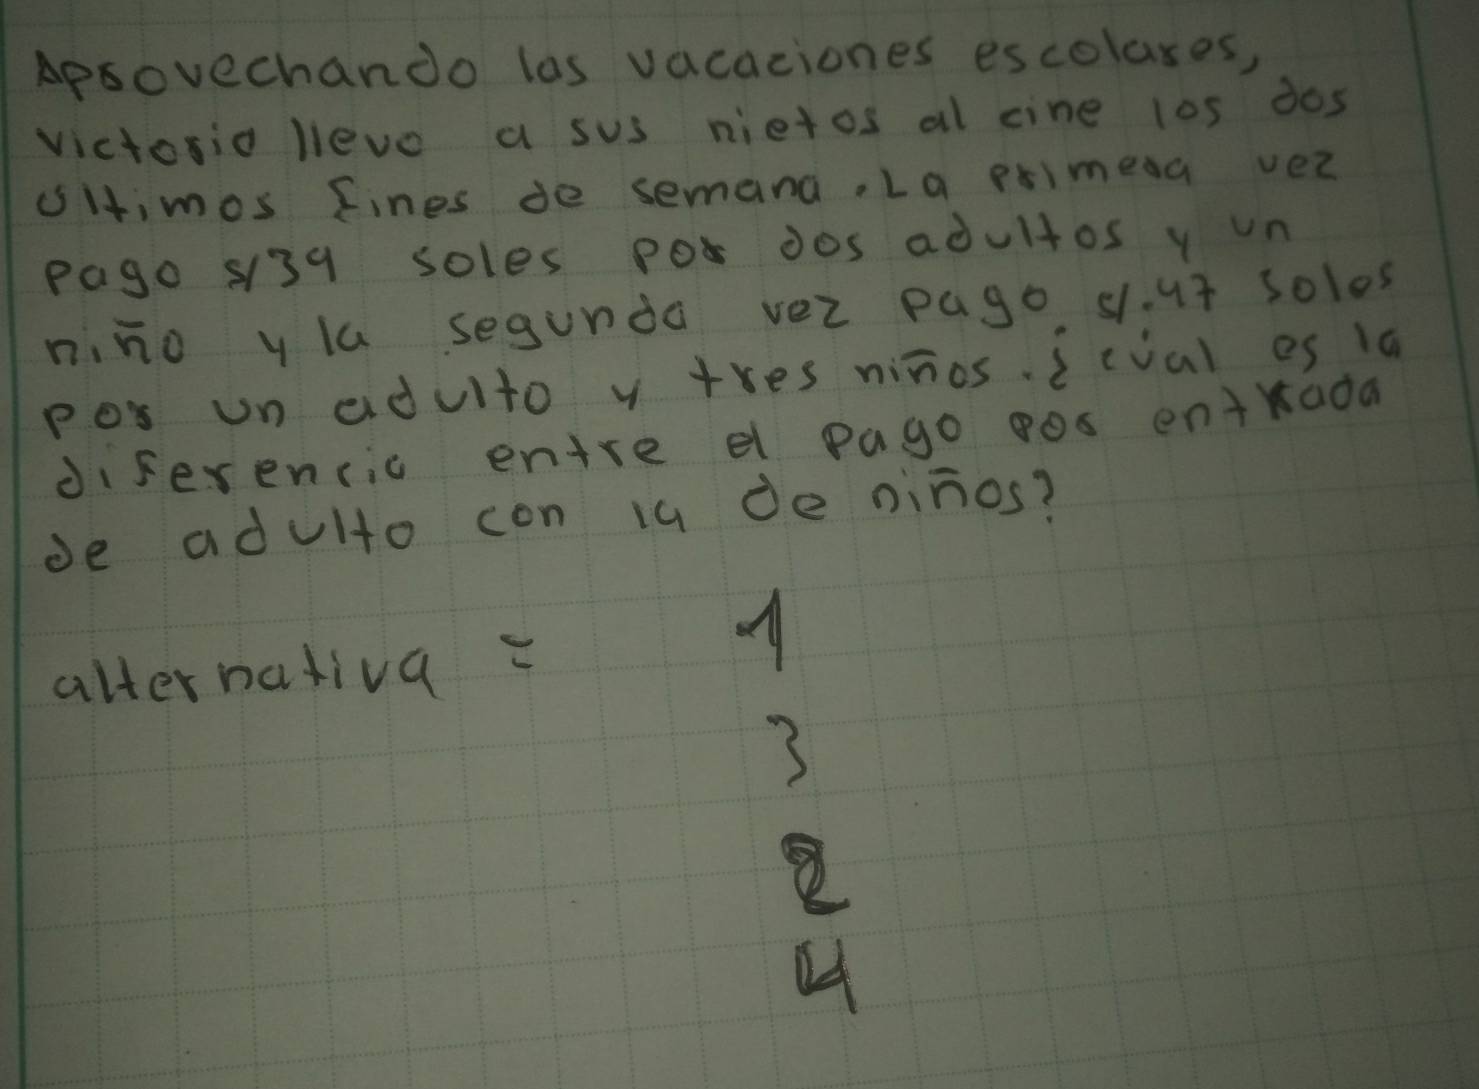 Aprovechando las vacaciones escolares,
victoria llevo a sus nietos al cine los dos
Ultimos fines de semana. La primera vez
pago s/39 soles por dos adultos y un
niño y la segunda vez pago s/.47 soles
por un adulto y tres niños. ¿cúal es la
diferencia entre el pago por entrada
de adulto con la de niños?
alternativa =
1
3
2
4